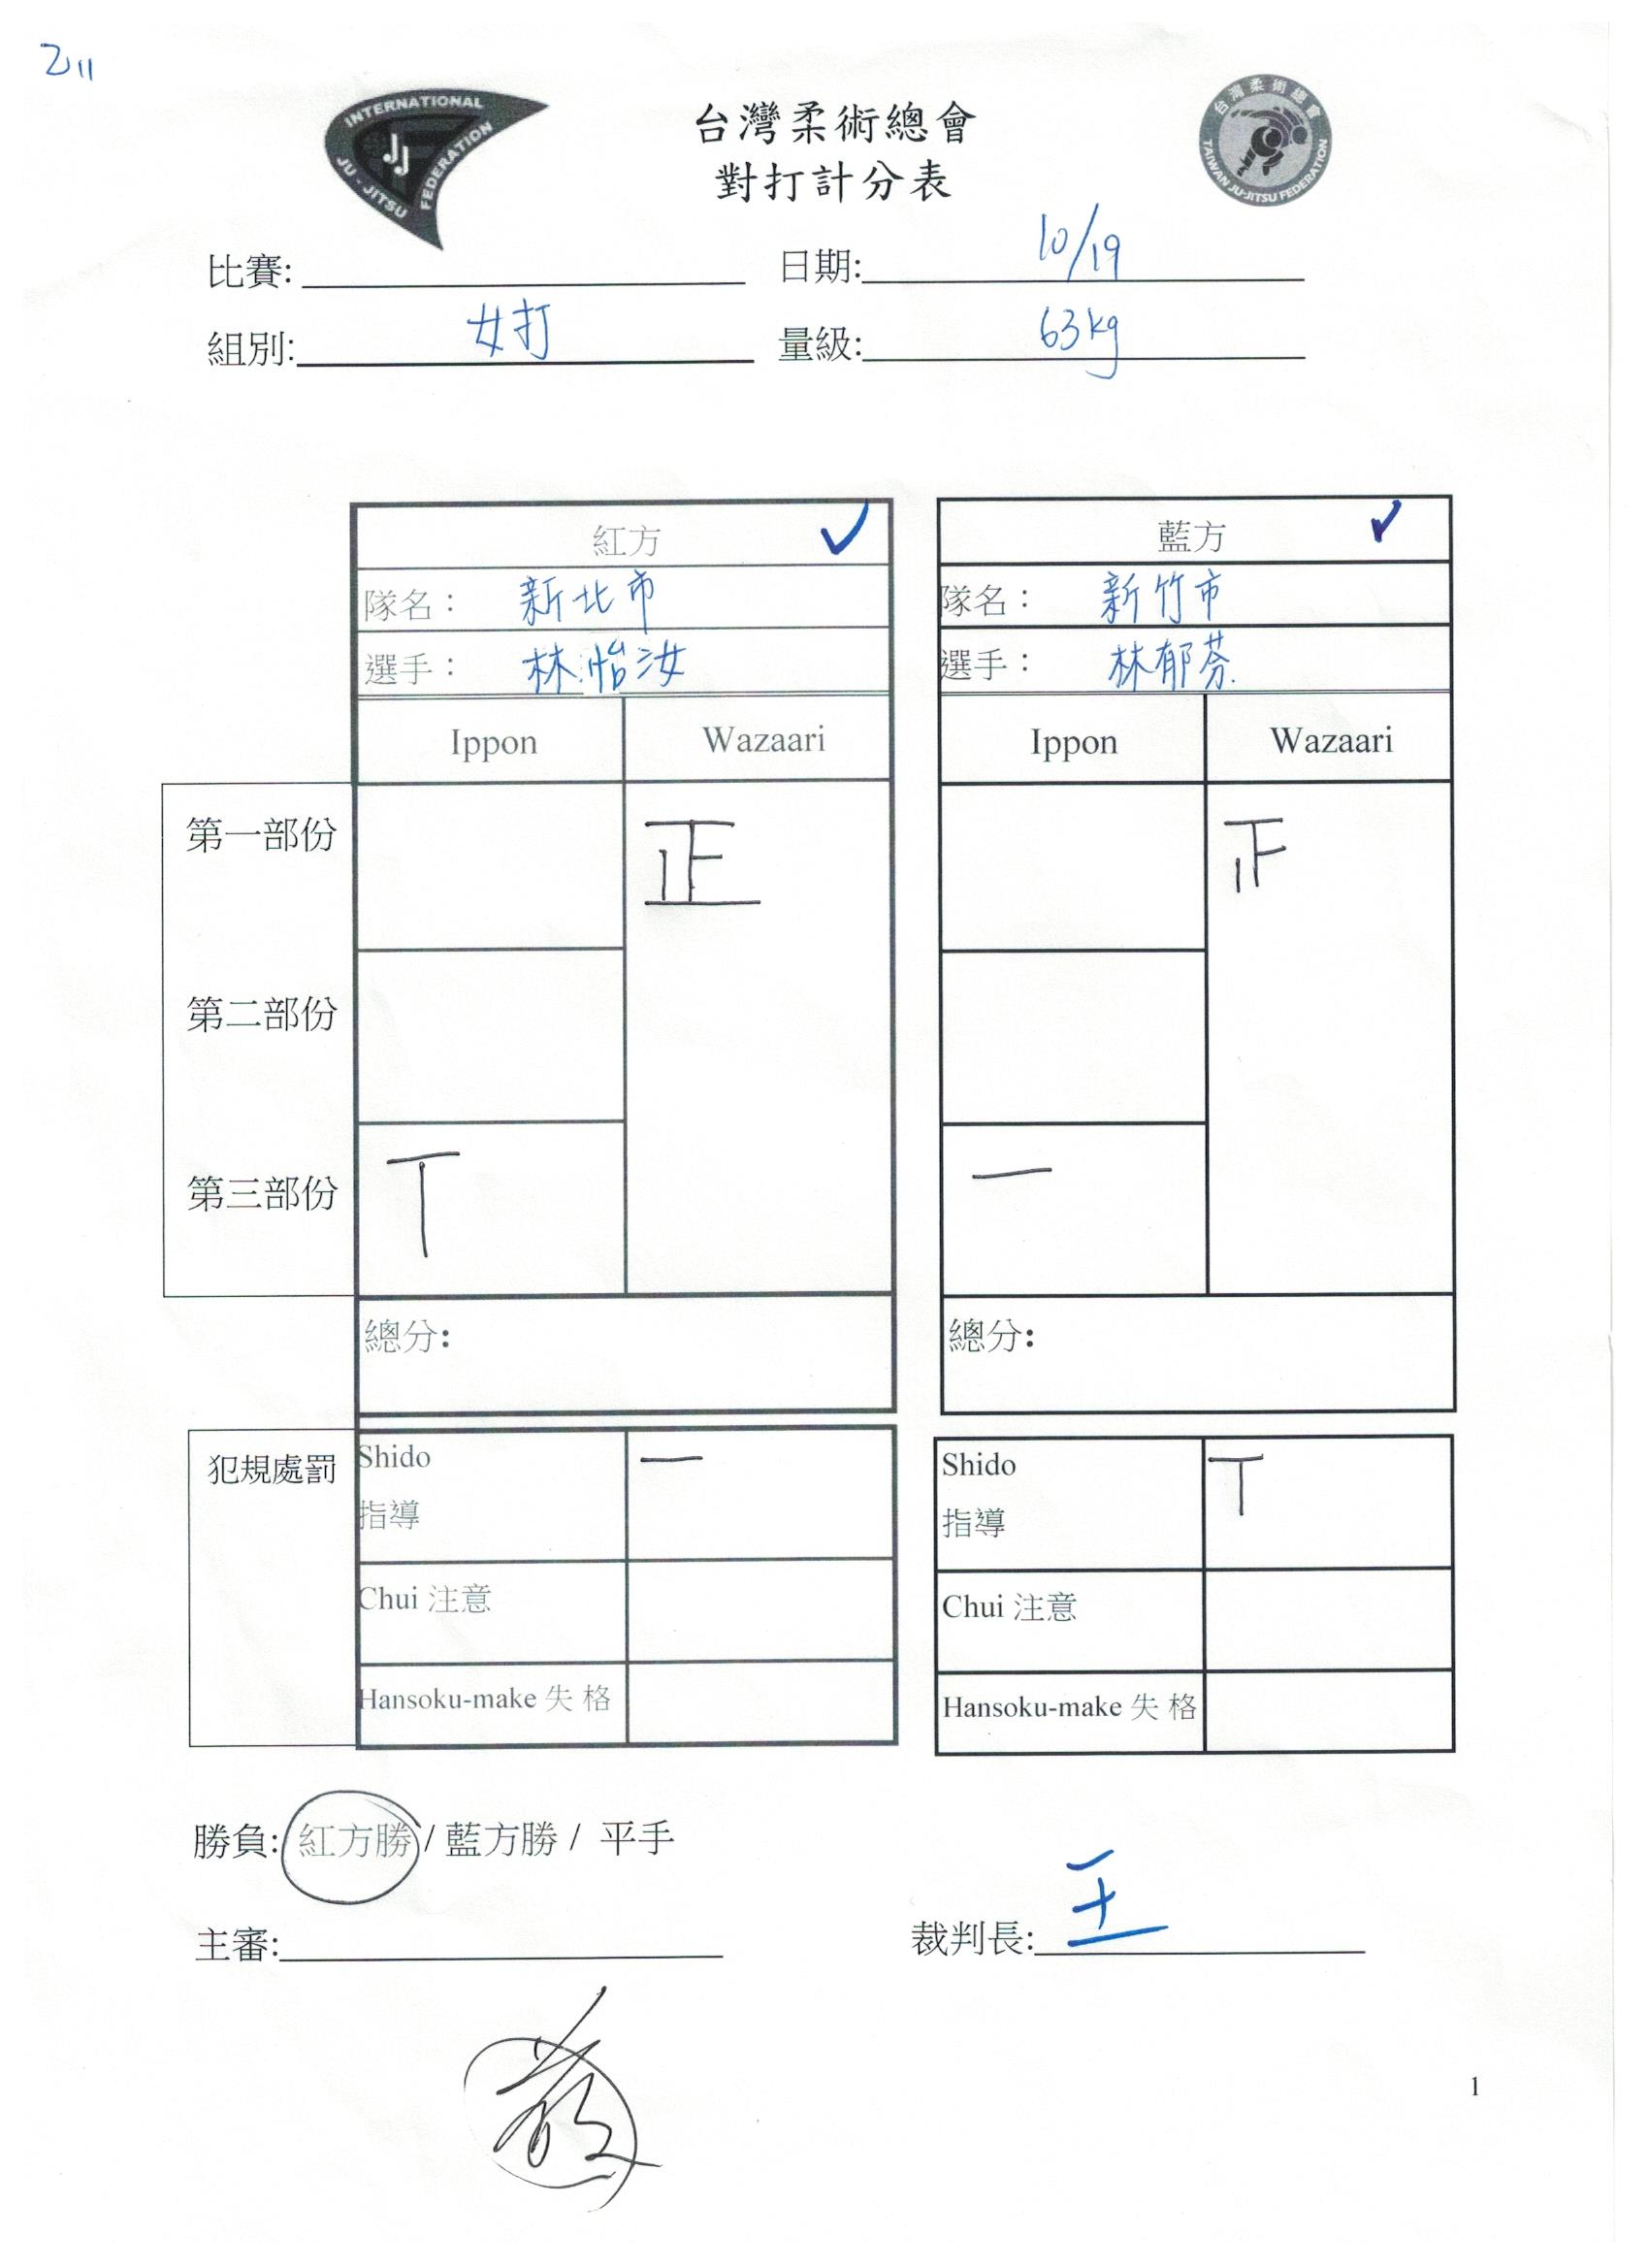 乙11
INTERNATIONAL JU-JITSU FEDERATION
JJ
台灣柔術總會
TAIWAN JU-JITSU FEDERATION
台灣柔術總會
對打計分表
比賽:
日期: 10/19
組別: 女打
量級: 63kg
紅方 ✓
藍方 ✓
隊名： 新北市
隊名： 新竹市
選手： 林怡汝
選手： 林郁芬
Ippon Wazaari
Ippon Wazaari
第一部份 正 正
第二部份
第三部份 丅 一
總分:
總分:
犯規處罰
Shido 一
指導
Chui 注意
Hansoku-make 失 格
Shido 丅
指導
Chui 注意
Hansoku-make 失 格
勝負: 紅方勝 / 藍方勝 / 平手
主審:
裁判長: 王
1